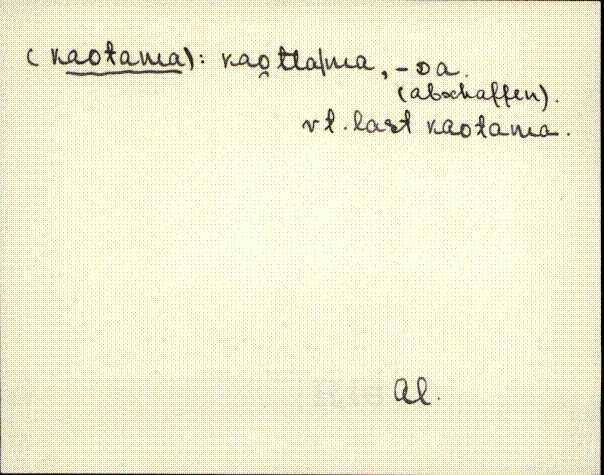 (kaotama): kao̯tta/ma, -Da.
(abschaffen).
vt. last kaotama.
Al.